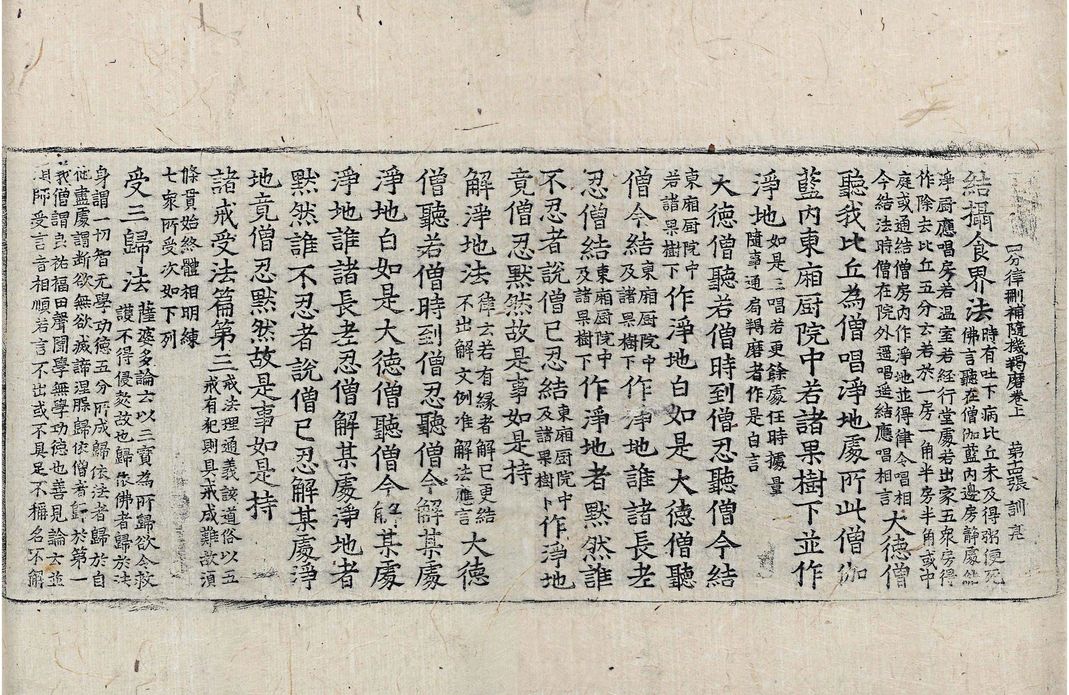 四分律刪補隨機羯磨卷上 第十四張 訓亮
結攝食界法時有吐下病比丘未及得粥便死
佛言聽在僧伽藍內邊房靜處結
淨厨應唱房若溫室若經行堂處若出家五衆房得
作除去比丘五分云若於一房一角半房半角或中
庭或通結僧房內作淨地並得律令唱相
今結法時僧在院外遥唱遥結應唱相言大德僧
聽我比丘為僧唱淨地處所此僧伽
藍內東廂厨院中若諸果樹下並作
淨地如是三唱若更餘處任時據量
隨事通局羯磨者作是白言
大德僧聽若僧時到僧忍聽僧今結
東廂厨院中
若諸果樹下作淨地白如是大德僧聽
僧今結東廂厨院中
及諸果樹下作淨地誰諸長老
忍僧結東廂厨院中
及諸果樹下作淨地者默然誰
不忍者說僧已忍結東廂厨院中
及諸果樹下作淨地
竟僧忍默然故是事如是持
解淨地法律云若有緣者解已更結
不出解文例准解法應言大德
僧聽若僧時到僧忍聽僧今解某處
淨地白如是大德僧聽僧今解某處
淨地誰諸長老忍僧解某處淨地者
默然誰不忍者說僧已忍解某處淨
地竟僧忍默然故是事如是持
諸戒受法篇第三戒法理通義該道俗以五
戒有犯則具戒成難故須
條貫始終體相明練
七衆所受次如下列
受三歸法薩婆多論云以三寶為所歸欲令救
護不得侵欺故也歸依佛者歸於法
身謂一切智无學功德五分所成歸依法者歸於自
他盡處謂斷欲無欲滅諦涅槃歸依僧者歸於第一
義僧謂良祐福田聲聞學無學功德也善見論云並
須師受言言相順若言不出或不具足不稱名不解